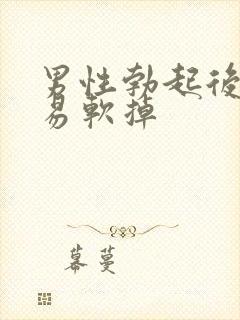 男性勃起後
易軟掉
幕蔓